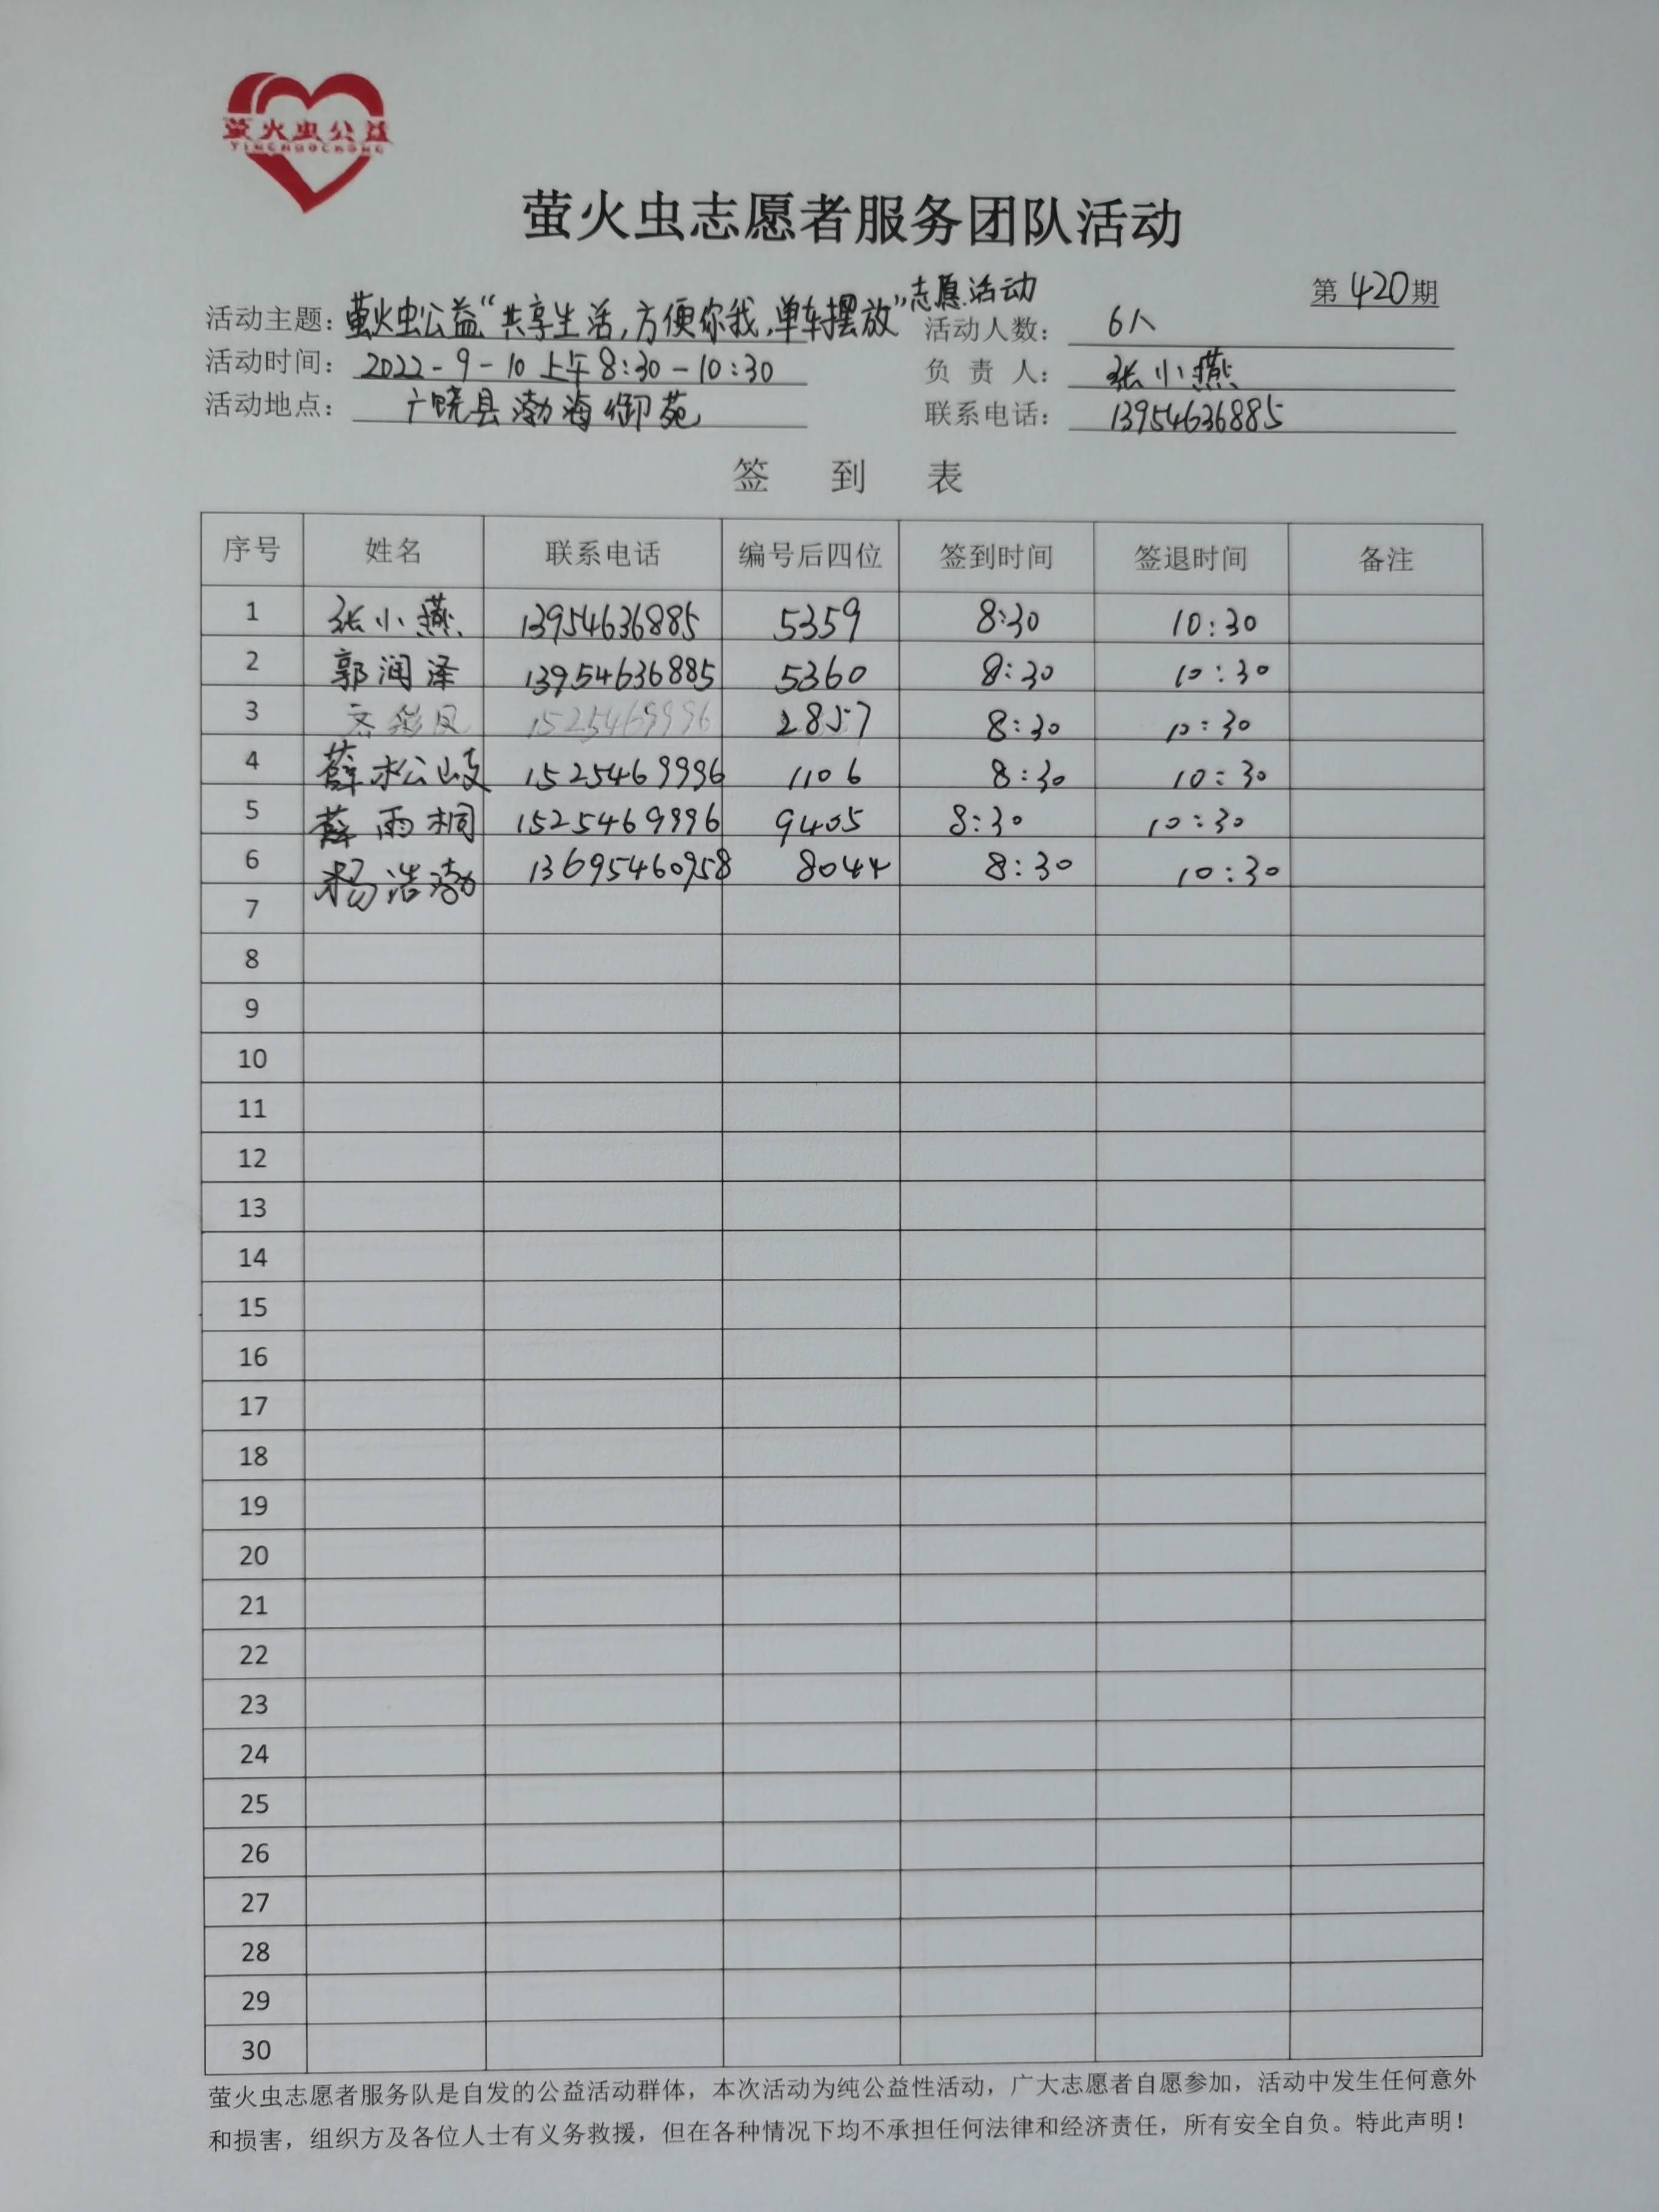 萤火虫公益
YINGHUOCHONG
萤火虫志愿者服务团队活动
第420期
活动主题：萤火虫公益“共享生活，方便你我，单车摆放”志愿活动 活动人数：6人
活动时间：2022-9-10 上午8:30-10:30 负责人：张小燕
活动地点：广饶县渤海御苑 联系电话：13954636885
签到表
序号 姓名 联系电话 编号后四位 签到时间 签退时间 备注
1 张小燕 13954636885 5359 8:30 10:30
2 郭润泽 13954636885 5360 8:30 10:30
3 齐彩凤 15254699996 2857 8:30 10:30
4 薛松岐 15254699996 1106 8:30 10:30
5 薛雨桐 15254699996 9405 8:30 10:30
6 杨浩渤 13695460958 8044 8:30 10:30
7
8
9
10
11
12
13
14
15
16
17
18
19
20
21
22
23
24
25
26
27
28
29
30
萤火虫志愿者服务队是自发的公益活动群体，本次活动为纯公益性活动，广大志愿者自愿参加，活动中发生任何意外
和损害，组织方及各位人士有义务救援，但在各种情况下均不承担任何法律和经济责任，所有安全自负。特此声明！